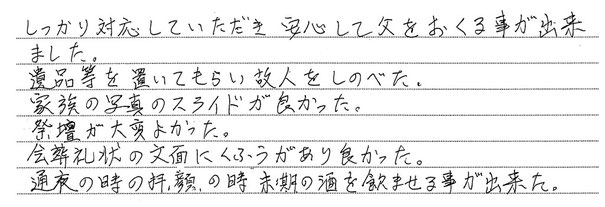 しっかり対応していただき 安心して父をおくる事が出来
ました。
遺品等を置いてもらい故人をしのべた。
家族の写真のスライドが良かった。
祭壇が大変よかった。
会葬礼状の文面にくふうがあり良かった。
通夜の時の拝顔の時 末期の酒を飲ませる事が出来た。